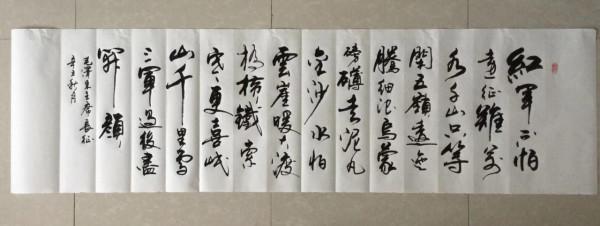 紅軍不怕
遠征難萬
水千山只等
閑五嶺逶迤
騰細浪烏蒙
磅礴走泥丸
金沙水拍
雲崖暖大渡
橋橫鐵索
寒更喜岷
山千里雪
三軍過後盡
開顏
毛澤東主席長征
辛丑秋月